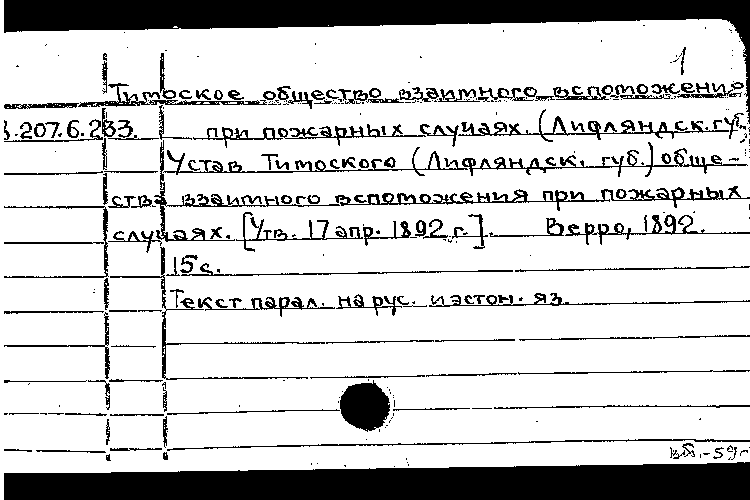 1
Тимоское общество взаимного вспоможения
.207.6.233. при пожарных случаях. (Лифляндск. губ.
Устав Тимоского (Лифляндск. губ.) обще-
ства взаимного вспоможения при пожарных
случаях. [Утв. 17 апр. 1892 г.]. Верро, 1892.
15 с.
Текст парал. на рус. и эстон. яз.